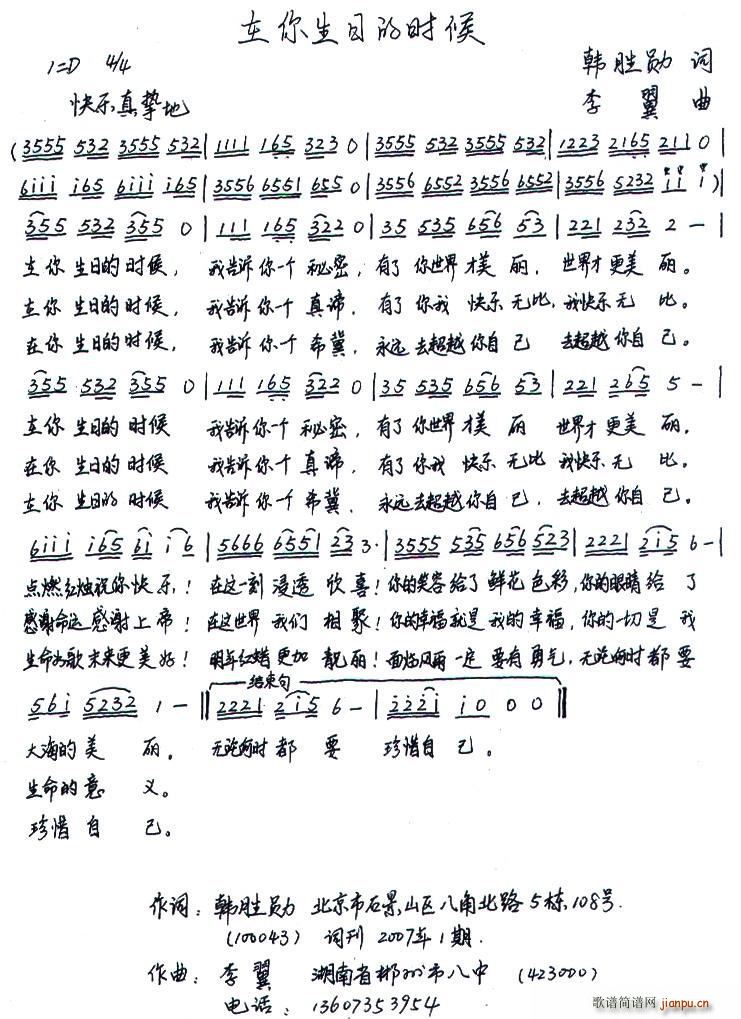 在你生日的时候
1=D 4/4
韩胜勋 词
快乐,真挚地
李翼 曲
(3555 532 3555 532|1111 165 323 0|3555 532 3555 532|1223 2165 211 0|
6iii i65 6iii i65|3556 6551 655 0|3556 6552 3556 6552|3556 5232 ii i)|
355 532 355 0|111 165 322 0|35 535 656 53|221 232 2 -|
在你 生日的 时候, 我告诉 你一个 秘密, 有了 你世界 才美 丽, 世界才 更美 丽。
在你 生日的 时候, 我告诉 你一个 真谛, 有了 你我 快乐 无比,我快乐 无 比。
在你 生日的 时候, 我告诉 你一个 希冀, 永远 去超越 你自 己 去超越 你自 己。
355 532 355 0|111 165 322 0|35 535 656 53|221 265 5 -|
在你 生日的 时候 我告诉 你一个 秘密, 有了 你世界 才美 丽 世界才 更美 丽.
在你 生日的 时候 我告诉 你一个 真谛, 有了 你我 快乐 无比 我快乐 无 比。
在你 生日的 时候 我告诉 你一个 希冀, 永远 去超越 你自 己, 去超越 你自 己。
6iii i65 6i i6|5666 6551 23 3·|3555 535 656 523|2221 2i5 6 -|
点燃红烛祝你 快 乐! 在这一刻 浸透 欣 喜! 你的笑容 给了 鲜花 色彩, 你的眼睛 给 了
感谢命运 感谢 上 帝! 在这世界 我们 相 聚! 你的幸福 就是 我的 幸福, 你的一切 是 我
生命如歌 未来更 美 好! 明年红蜡 更加 靓 丽! 面临风雨 一定 要有 勇气, 无论何时 都 要
结束句
56i 5232 1 -‖2221 2i5 6 -|222i i 0 0 0‖
大海的 美 丽. 无论何时 都 要 珍惜自 己。
生命的 意 义。
珍惜 自 己。
作词: 韩胜勋 北京市石景山区八角北路5栋108号.
(100043) 词刊 2007年1期.
作曲: 李翼 湖南省郴州市八中 (423000)
电话: 13607353954
歌谱简谱网 jianpu.cn